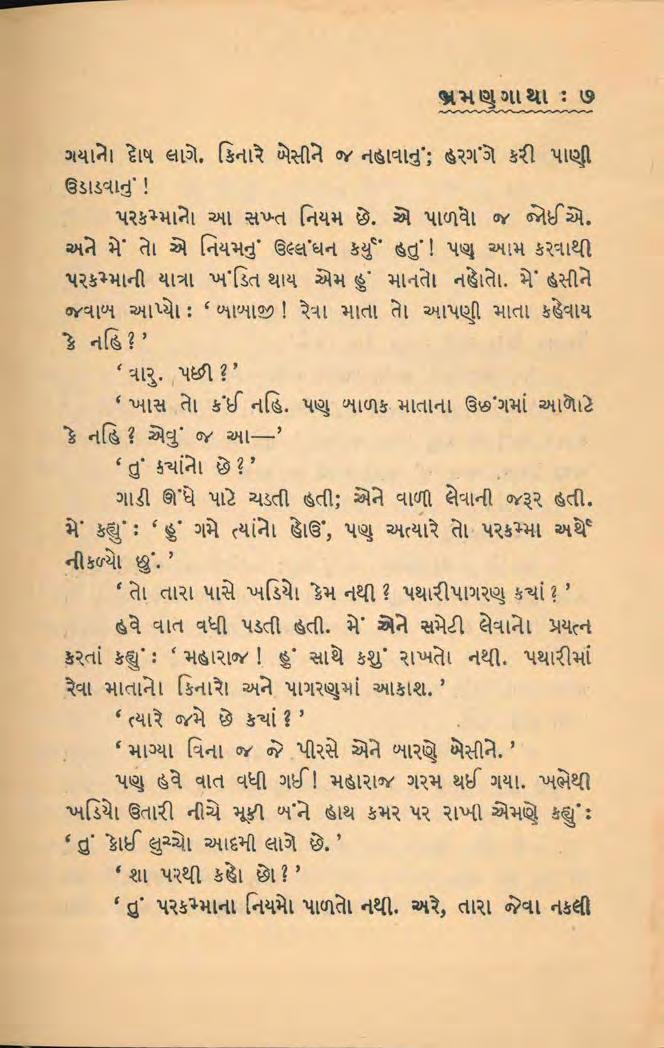 ભ્રમણગાથા : ૭
ગયાનો દોષ લાગે. કિનારે બેસીને જ નહાવાનું; હરગંગે કરી પાણી
ઉડાડવાનું !
પરકમ્માનો આ સખ્ત નિયમ છે. એ પાળવો જ જોઈએ.
અને મેં તો એ નિયમનું ઉલ્લંઘન કર્યું હતું! પણ આમ કરવાથી
પરકમ્માની યાત્રા ખંડિત થાય એમ હું માનતો નહોતો. મેં હસીને
જવાબ આપ્યો : ‘ બાબાજી ! રેવા માતા તો આપણી માતા કહેવાય
કે નહિ ? ’
‘ વારુ. પછી ? ’
‘ ખાસ તો કંઈ નહિ. પણ બાળક માતાના ઉછંગમાં આળોટે
કે નહિ ? એવું જ આ—’
‘ તું ક્યાંનો છે ? ’
ગાડી ઊંધે પાટે ચડતી હતી; એને વાળી લેવાની જરૂર હતી.
મેં કહ્યું : ‘ હું ગમે ત્યાંનો હોઉં, પણ અત્યારે તો પરકમ્મા અર્થે
નીકળ્યો છું. ’
‘ તો તારા પાસે ખડિયો કેમ નથી ? પથારીપાગરણ ક્યાં ? ’
હવે વાત વધી પડતી હતી. મેં એને સમેટી લેવાનો પ્રયત્ન
કરતાં કહ્યું : ‘ મહારાજ ! હું સાથે કશું રાખતો નથી. પથારીમાં
રેવા માતાનો કિનારો અને પાગરણમાં આકાશ. ’
‘ ત્યારે જમે છે ક્યાં ? ’
‘ માગ્યા વિના જ જે પીરસે એને બારણે બેસીને. ’
પણ હવે વાત વધી ગઈ ! મહારાજ ગરમ થઈ ગયા. ખભેથી
ખડિયો ઉતારી નીચે મૂકી બંને હાથ કમર પર રાખી એમણે કહ્યું :
‘ તું કોઈ લુચ્ચો આદમી લાગે છે. ’
‘ શા પરથી કહો છો ? ’
‘ તું પરકમ્માના નિયમો પાળતો નથી. અરે, તારા જેવા નકલી